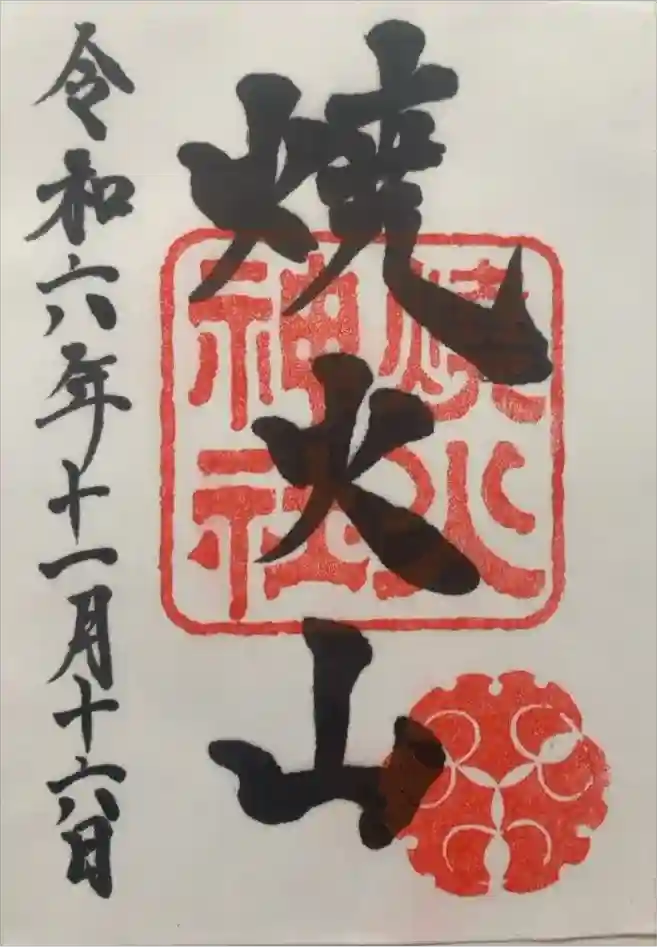 焼火山
焼火
神社
令和六年十一月十六日